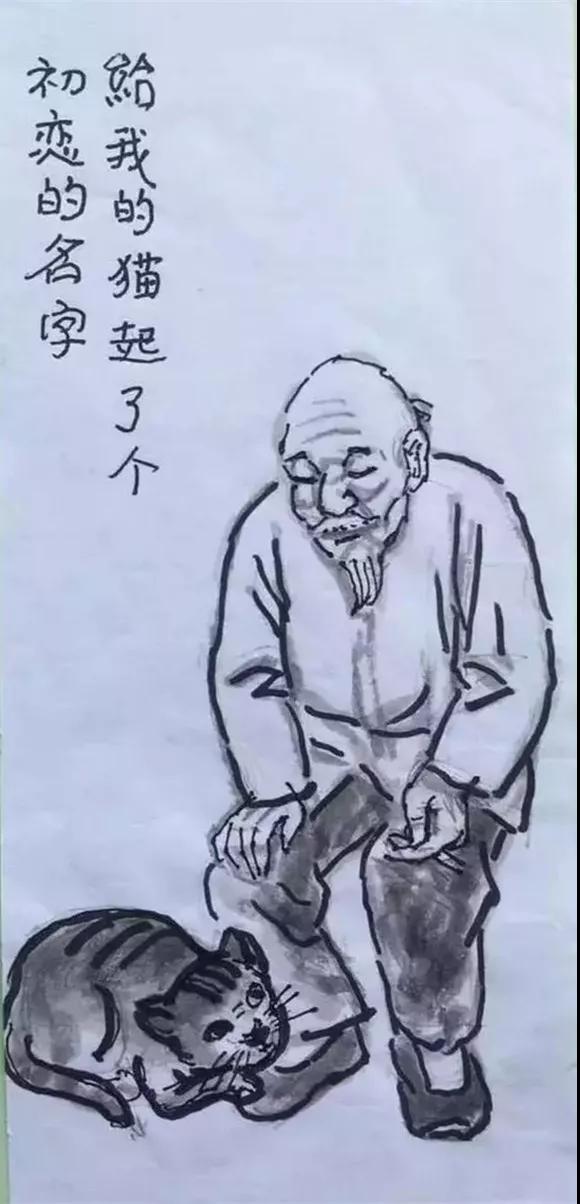 給我的猫起了个
初恋的名字